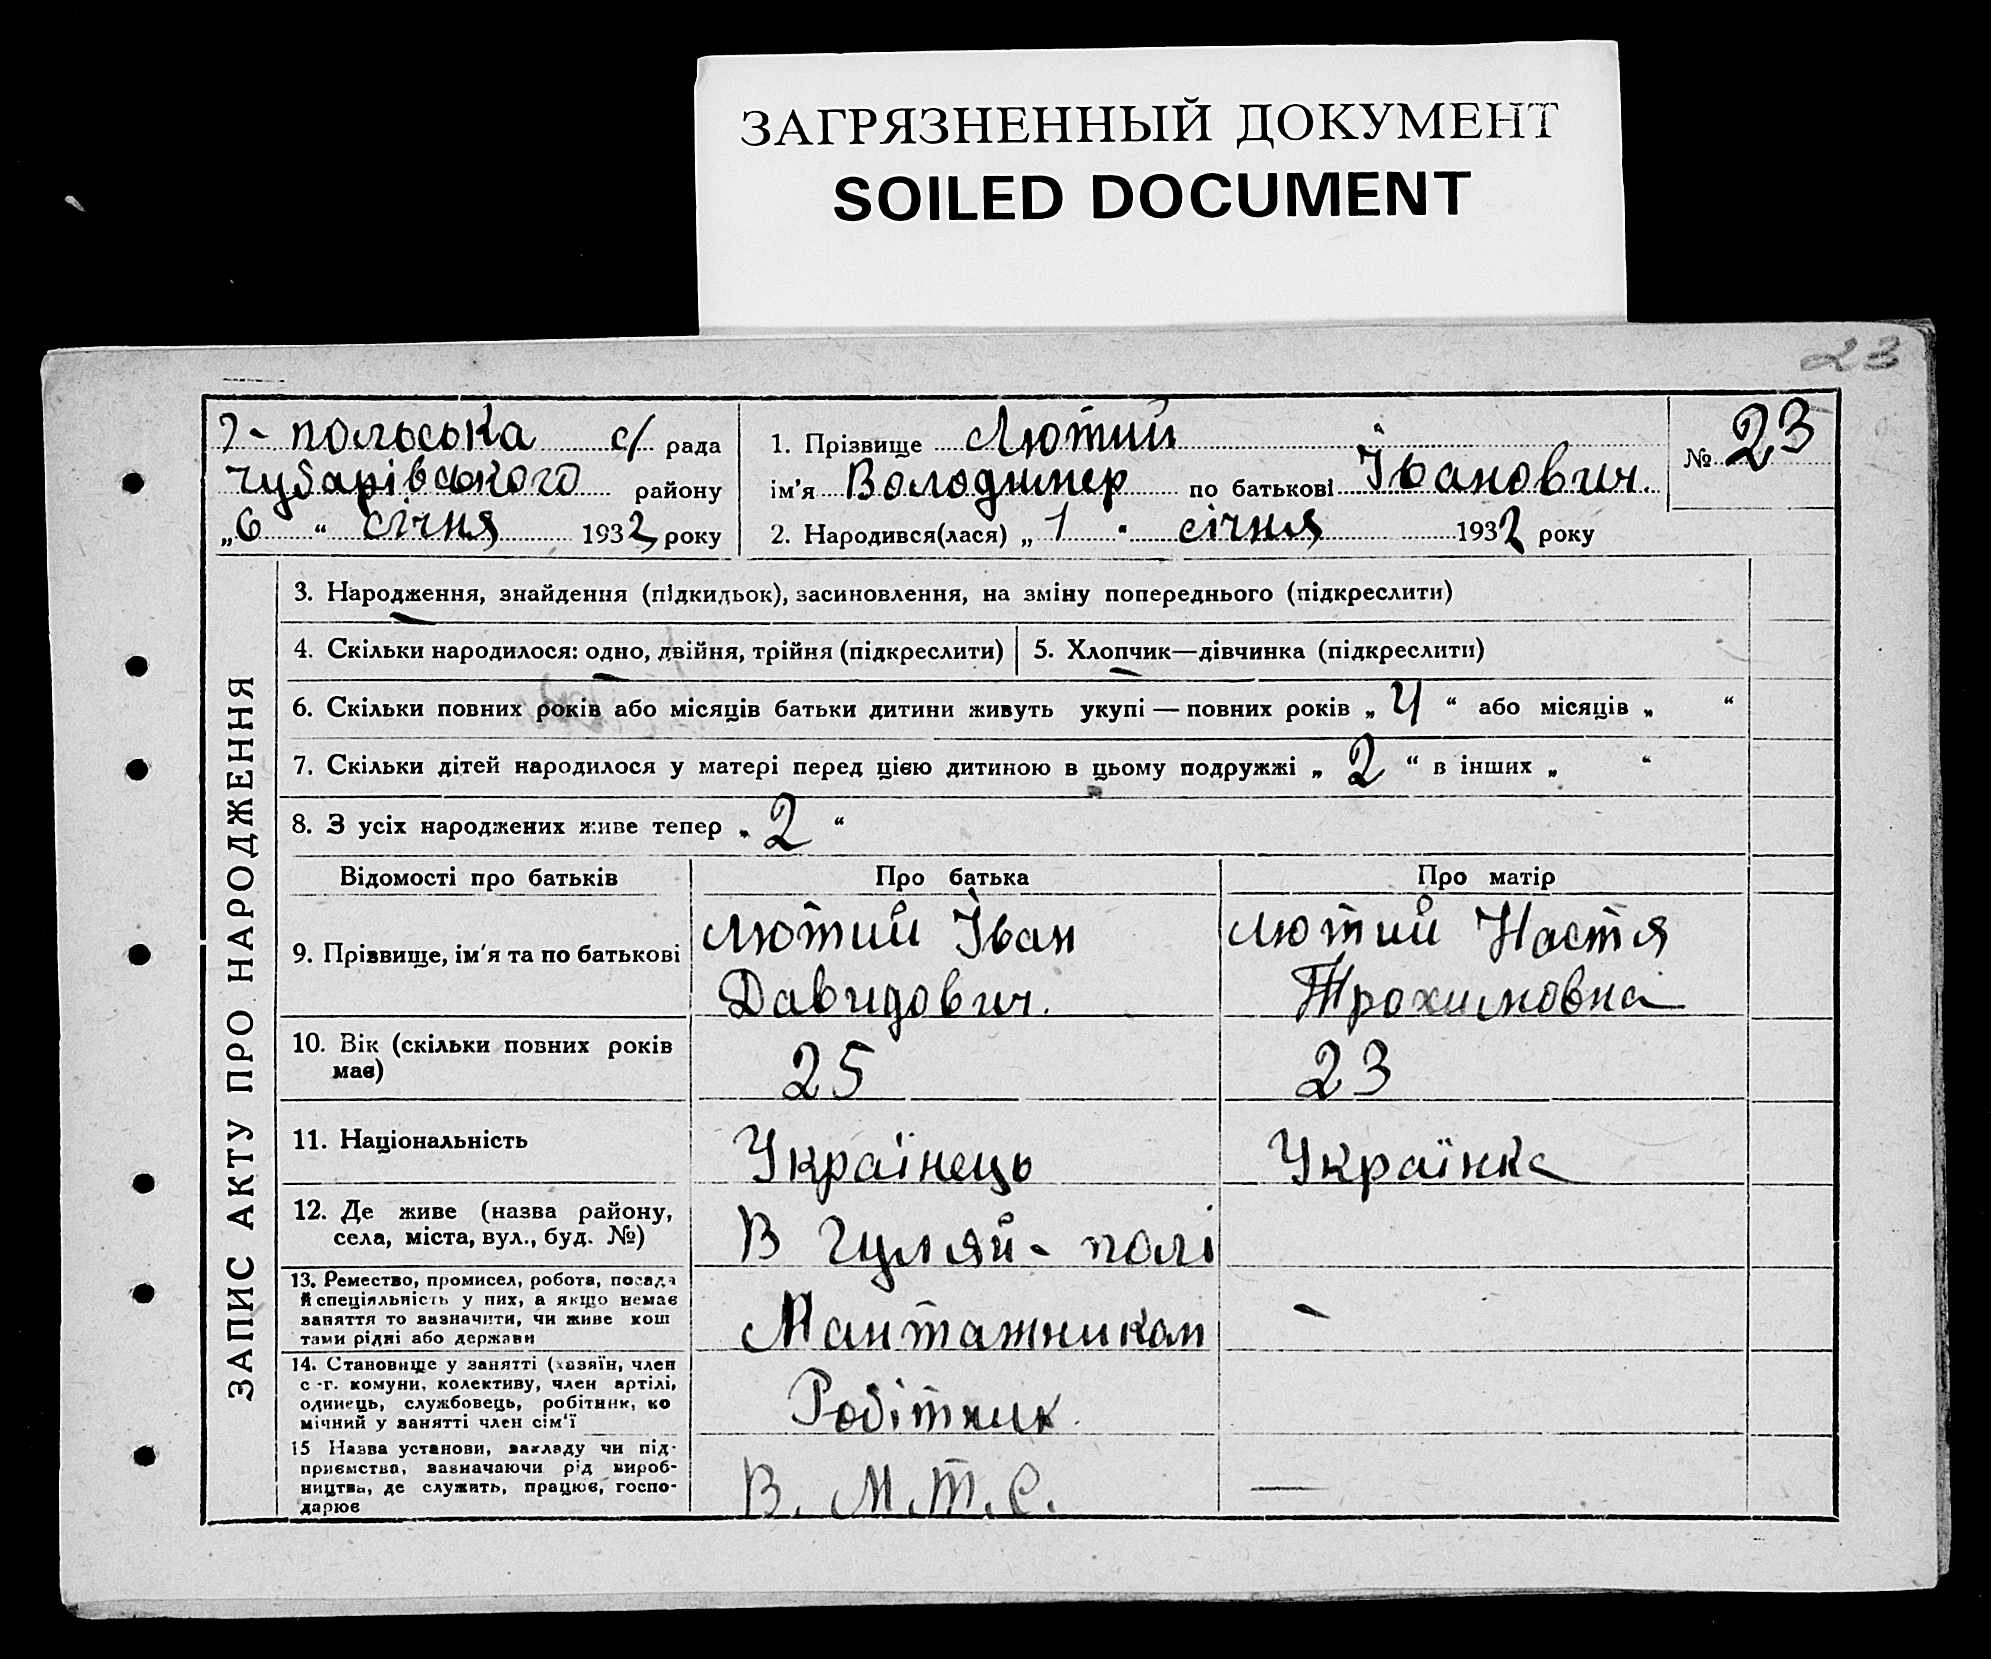 ЗАГРЯЗНЕННЫЙ ДОКУМЕНТ
SOILED DOCUMENT
23
Г- польська с/ рада
Чубарівського району
„6 “ січня 1932 року
1. Прізвище Лютий
ім'я Володимер по батькові Іванович.
2. Народився(лася) „ 1 “ січня 1932 року
№ 23
ЗАПИС АКТУ ПРО НАРОДЖЕННЯ
3. Народження, знайдення (підкидьок), засиновлення, на зміну попереднього (підкреслити)
4. Скільки народилося: одно, двійня, трійня (підкреслити)
5. Хлопчик—дівчинка (підкреслити)
6. Скільки повних років або місяців батьки дитини живуть укупі — повних років „ 4 “ або місяців „ “
7. Скільки дітей народилося у матері перед цією дитиною в цьому подружжі „ 2 “ в інших „ “
8. З усіх народжених живе тепер „ 2 “
Відомості про батьків
Про батька
Про матір
9. Прізвище, ім'я та по батькові
Лютий Іван
Давидович.
Лютий Настя
Трохимовна
10. Вік (скільки повних років
має)
25
23
11. Національність
Українець
Українка
12. Де живе (назва району,
села, міста, вул., буд. №)
В Гуляй- полі
13. Ремество, промисел, робота, посада
й спеціяльність у них, а якщо немає
заняття то зазначити, чи живе кош
тами рідні або держави
Мантажником
-
14. Становище у занятті (хазяїн, член
с -г. комуни, колективу, член артілі,
одинець, службовець, робітник, ко
мічний у занятті член сім'ї
Робітник.
15 Назва установи, закладу чи під-
приємства, зазначаючи рід вироб-
ництва, де служить, працює, госпо-
дарює
В. М.Т.С.
—